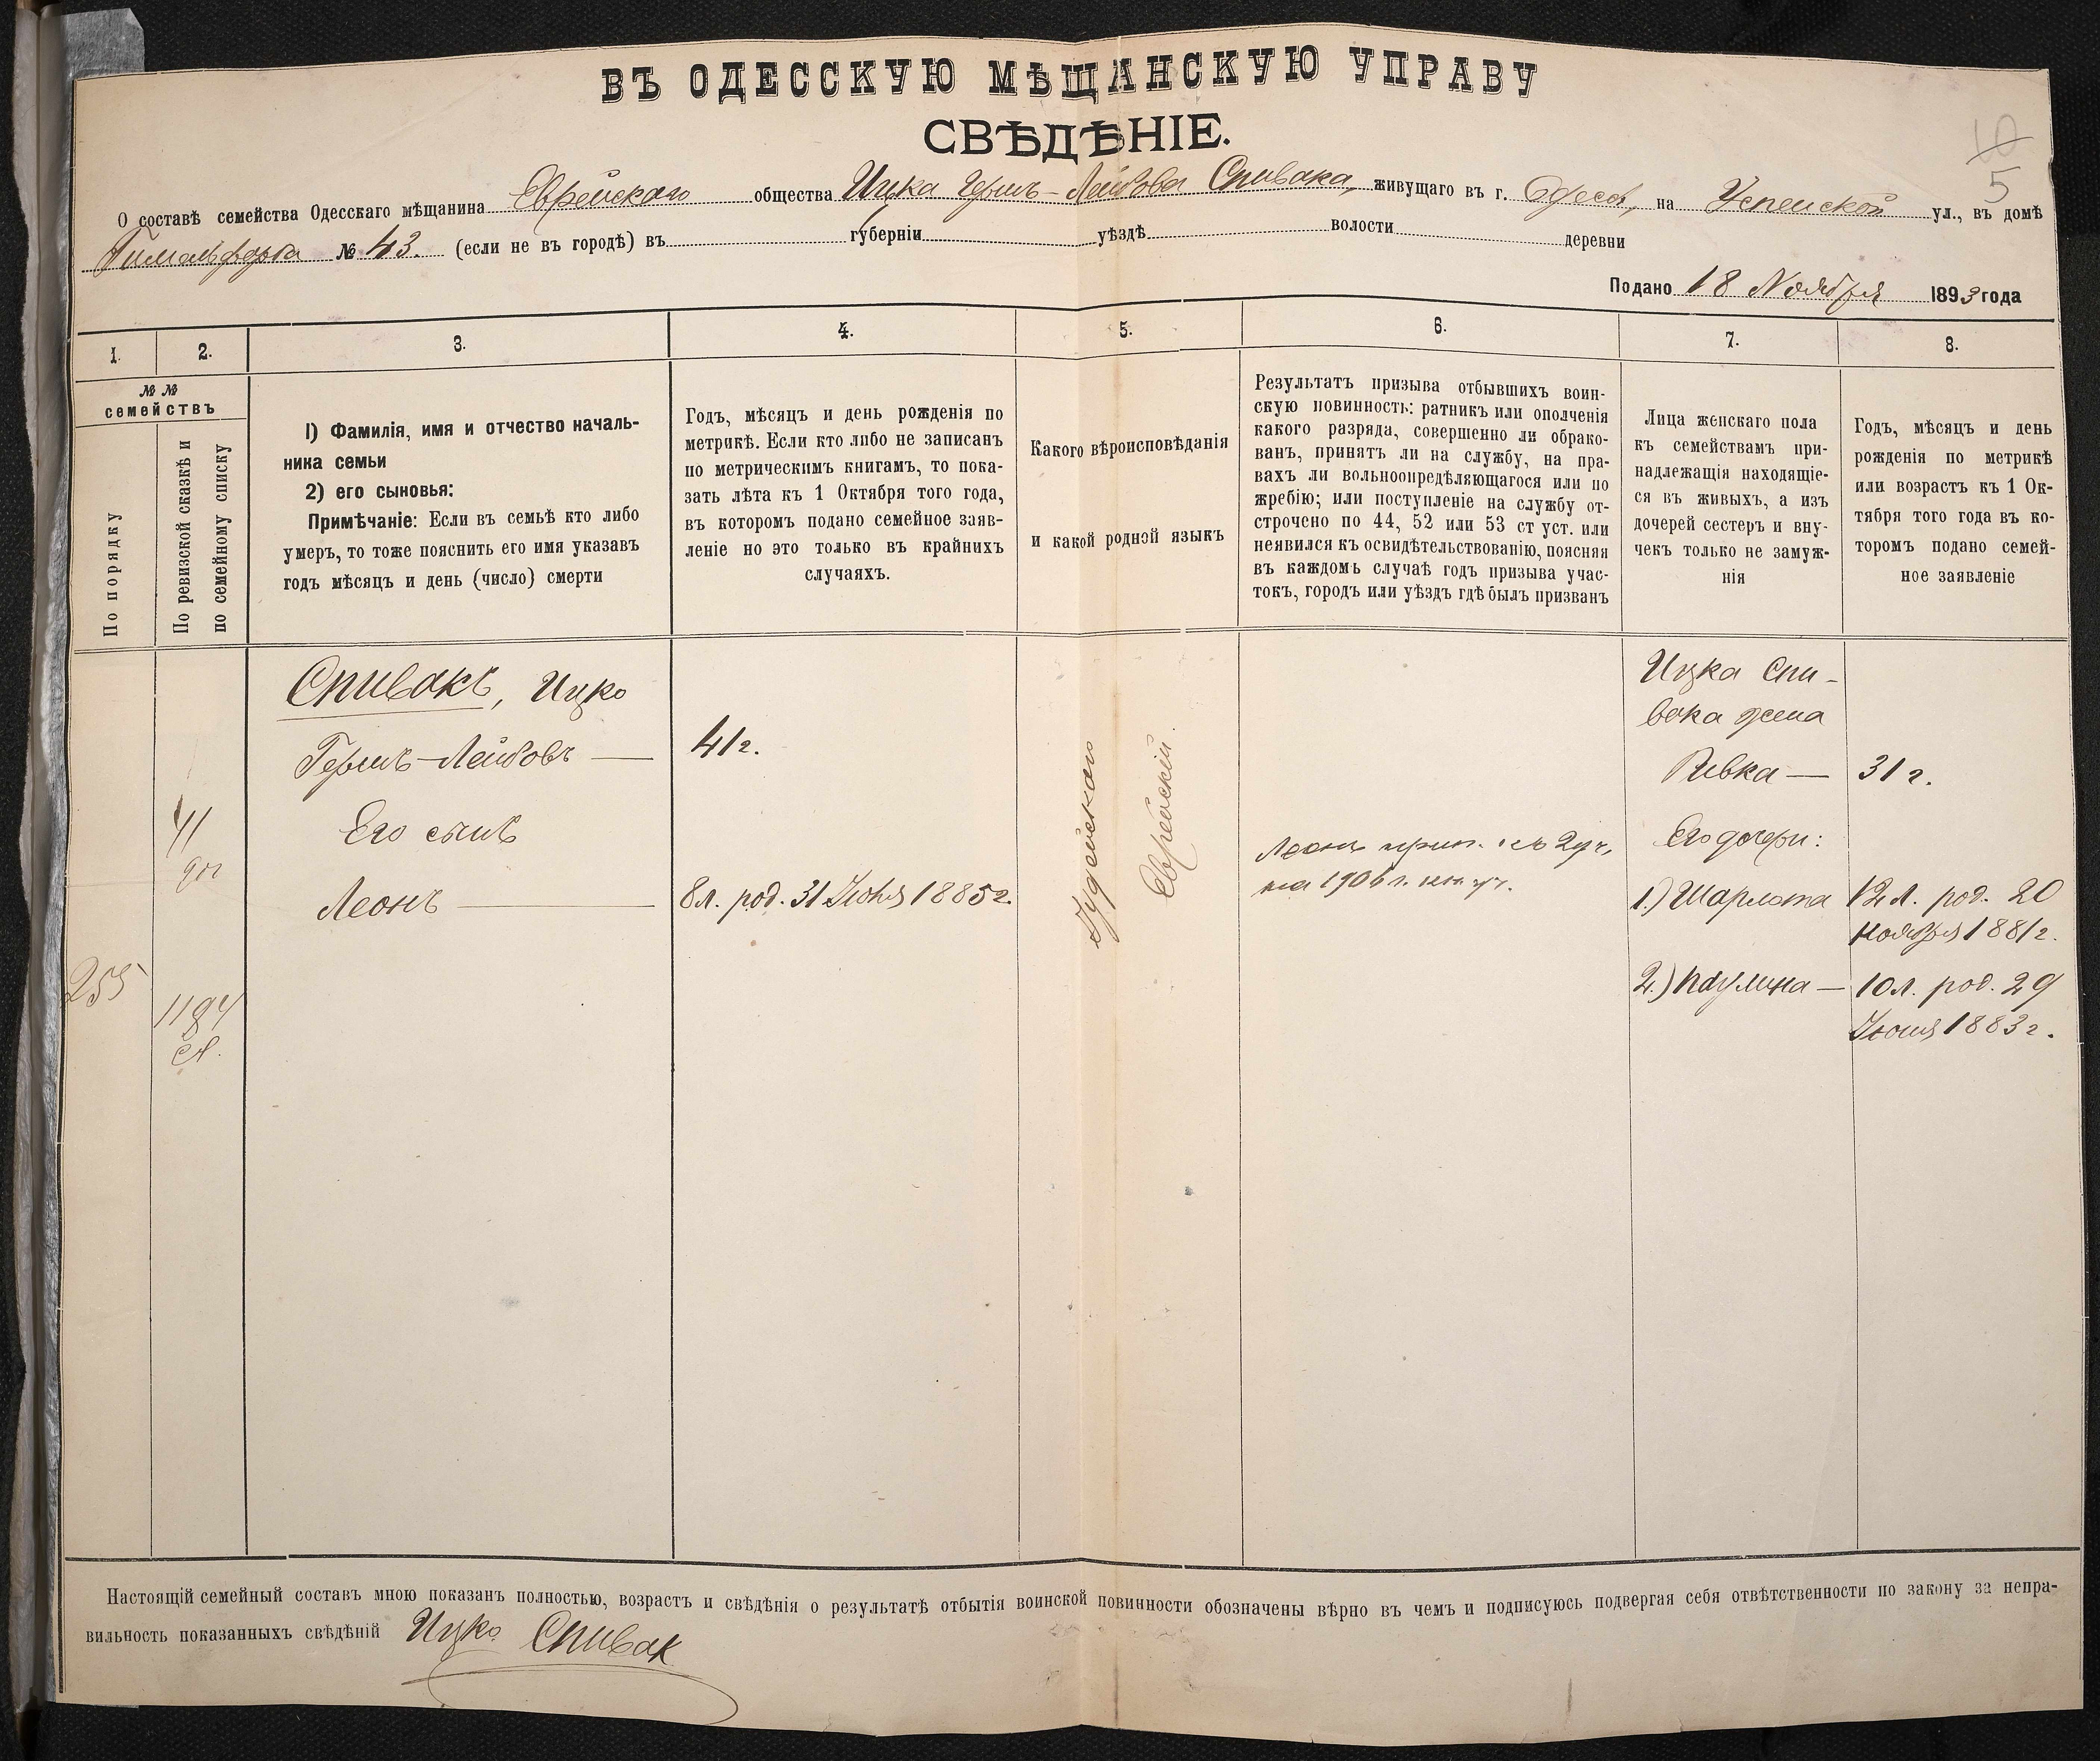 ВЪ ОДЕССКУЮ МѢЩАНСКУЮ УПРАВУ
СВѢДѢНІЕ.
5
О составѣ семейства Одесскаго мѣщанина Еврейскаго общества Ицка Гершъ-Лейбова Спивака, живущаго въ г. Одессѣ, на Успенской ул., въ домѣ
№ 43. (если не въ городѣ) въ губерніи уѣздѣ волости деревни
Подано 18 Ноября 1893 года
1.
2.
3.
4.
5.
6.
7.
8.
№ №
семействъ
По порядку
По ревизской сказкѣ и
по семейному списку
1) Фамилія, имя и отчество началь-
ника семьи
2) его сыновья:
Примѣчаніе: Если въ семьѣ кто либо
умеръ, то тоже пояснить его имя указавъ
годъ мѣсяцъ и день (число) смерти
Годъ, мѣсяцъ и день рожденія по
метрикѣ. Если кто либо не записанъ
по метрическимъ книгамъ, то пока-
зать лѣта къ 1 Октября того года,
въ которомъ подано семейное заяв-
леніе но это только въ крайнихъ
случаяхъ.
Какого вѣроисповѣданія
и какой родной языкъ
Результатъ призыва отбывшихъ воин-
скую повинность: ратникъ или ополченія
какого разряда, совершенно ли обрако-
ванъ, принятъ ли на службу, на пра-
вахъ ли вольноопредѣляющагося или по
жребію; или поступленіе на службу от-
строчено по 44, 52 или 53 ст уст. или
неявился къ освидѣтельствованію, поясняя
въ каждомъ случаѣ годъ призыва учас-
токъ, городъ или уѣздъ гдѣ былъ призванъ
Лица женскаго пола
къ семействамъ при-
надлежащія находящіе-
ся въ живыхъ, а изъ
дочерей сестеръ и вну-
чекъ только не замуж-
нія
Годъ, мѣсяцъ и день
рожденія по метрикѣ
или возрастъ къ 1 Ок-
тября того года въ ко-
торомъ подано семей-
ное заявленіе
255
41
1194
Спивакъ, Ицко
Гершъ-Лейбовъ —
41 г.
Его сынъ
Леонъ —
8 л. род. 31 Іюля 1885 г.
Іудейскаго
Еврейскій.
Леонъ прип. къ 2 уч.
на 1906 г.
Ицка Спи-
вака жена
Ривка —
31 г.
Его дочери:
1.) Шарлота
12 л. род. 20
ноября 1881 г.
2.) Паулина —
10 л. род. 29
Іюня 1883 г.
Настоящій семейный составъ мною показанъ полностью, возрастъ и свѣдѣнія о результатѣ отбытія воинской повинности обозначены вѣрно въ чемъ и подписуюсь подвергая себя отвѣтственности по закону за непра-
вильность показанныхъ свѣдѣній Ицко Спивак